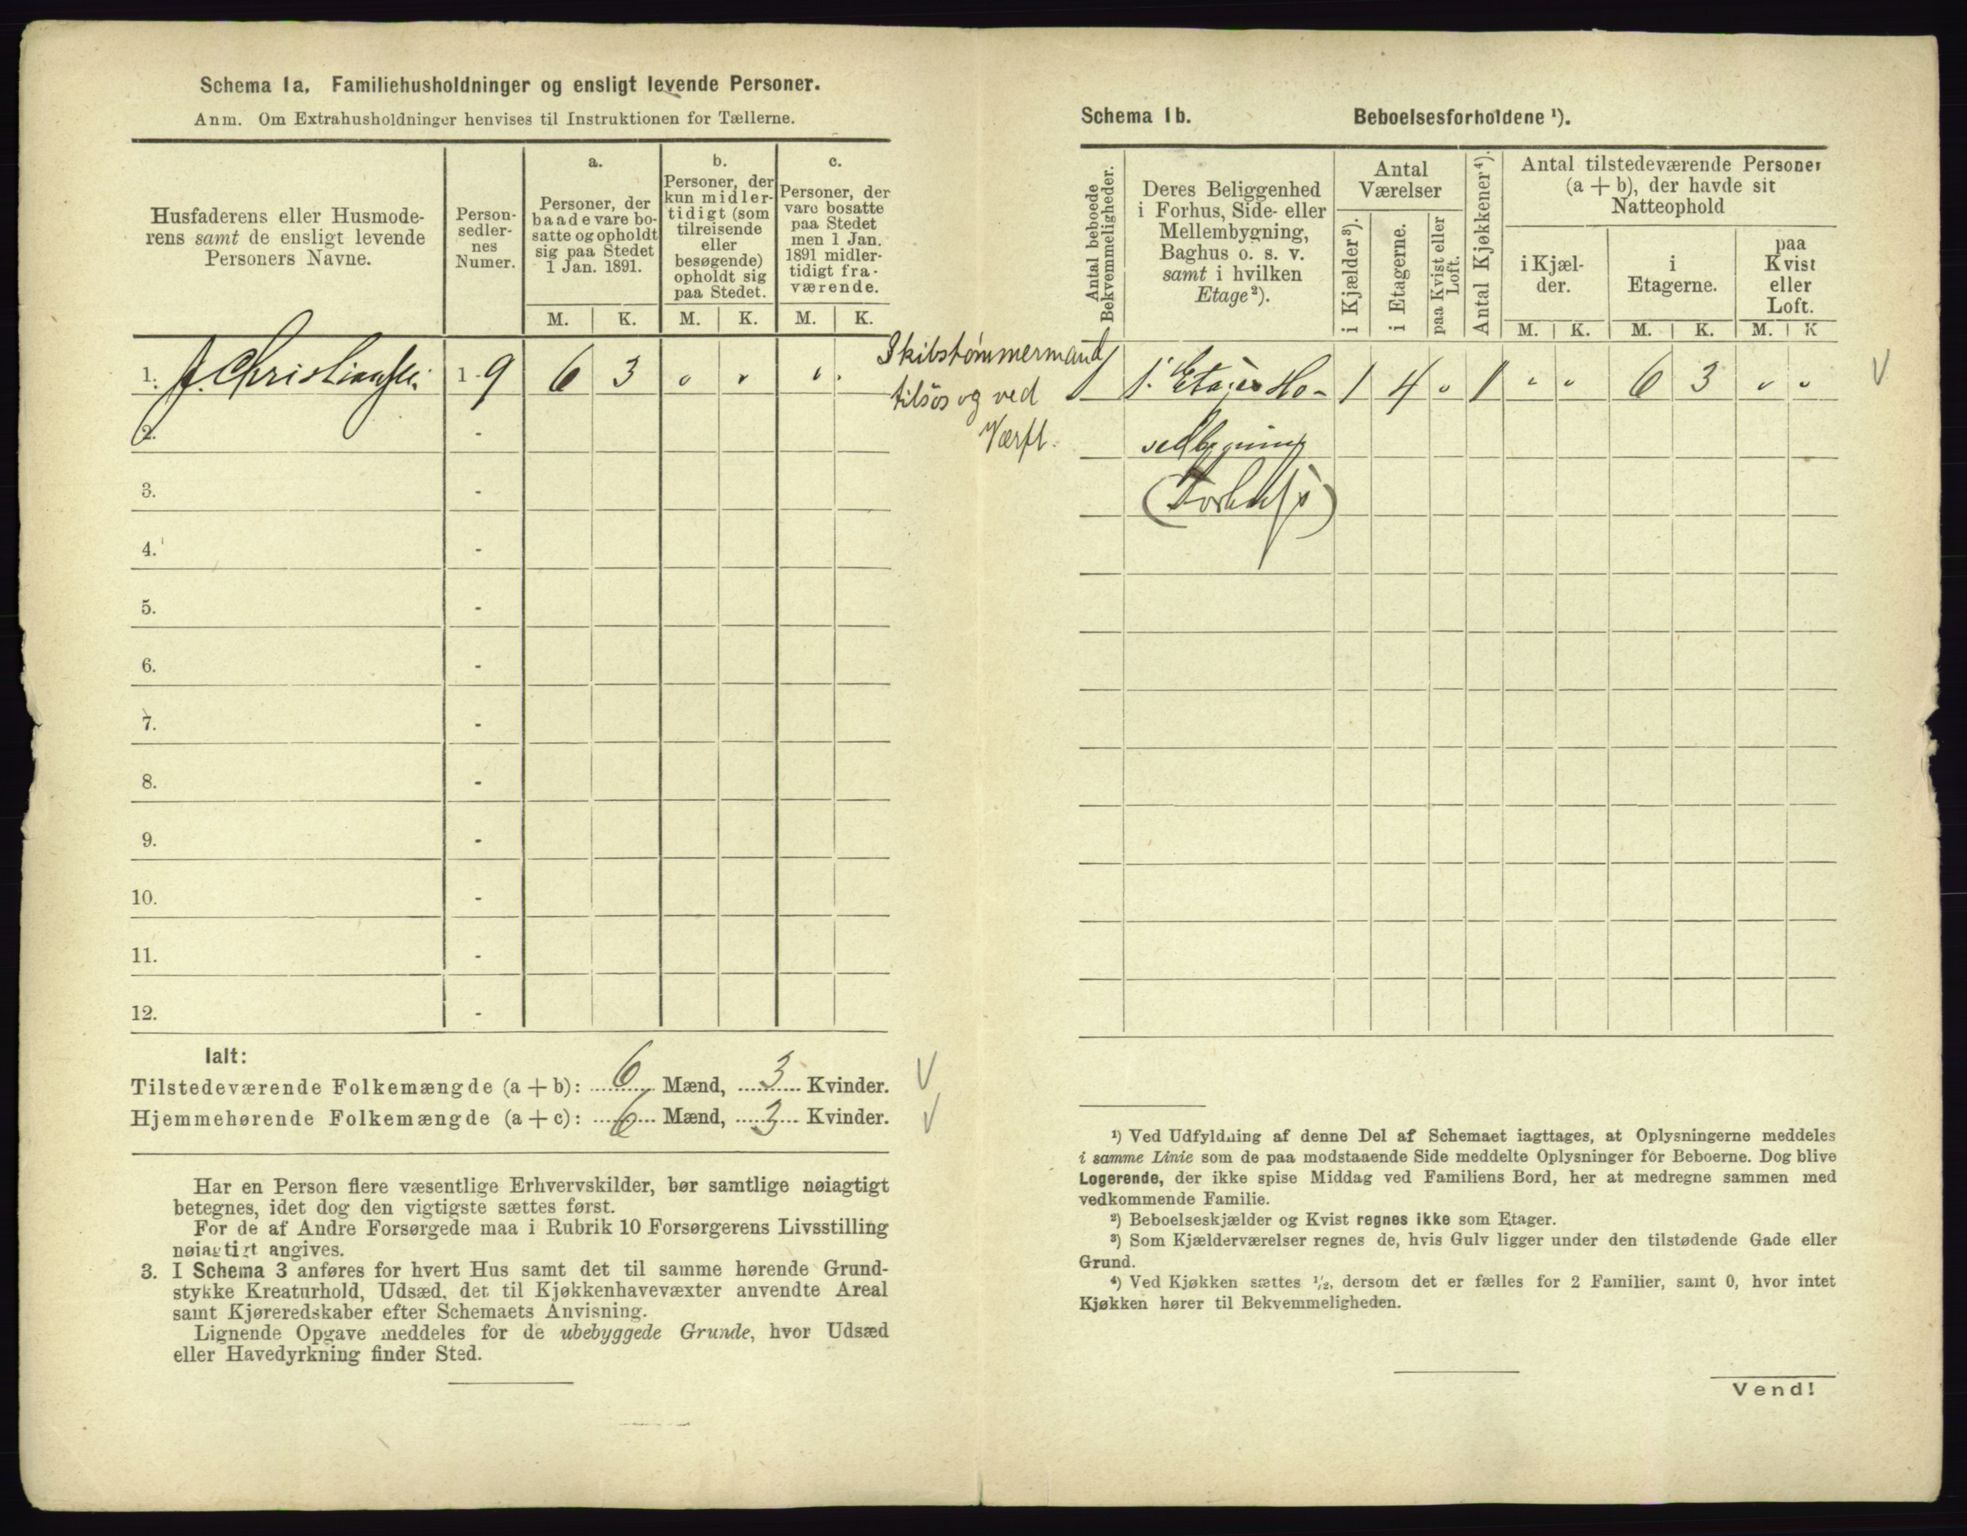 Schema 1a. Familiehusholdninger og ensligt levende Personer.
Anm. Om Extrahusholdninger henvises til Instruktionen for Tællerne.
Husfaderens eller Husmode-
rens samt de ensligt levende
Personers Navne.
Person-
sedler-
nes
Numer.
a.
Personer, der
baade vare bo-
satte og opholdt
sig paa Stedet
1 Jan. 1891.
b.
Personer, der
kun midler-
tidigt (som
tilreisende
eller
besøgende)
opholdt sig
paa Stedet.
c.
Personer, der
vare bosatte
paa Stedet
men 1 Jan.
1891 midler-
tidigt fra-
værende.
M. K. M. K. M. K.
1. J. Christiansen 1 - 9 6 3 " " " .
2. -
3. -
4. -
5. -
6. -
7. -
8. -
9. -
10. -
11. -
12. -
Skibstømmermand
tilsøs og ved
Værft.
Ialt:
Tilstedeværende Folkemængde (a + b): 6 Mænd, 3 Kvinder.
Hjemmehørende Folkemængde (a + c): 6 Mænd, 3 Kvinder.
Har en Person flere væsentlige Erhvervskilder, bør samtlige nøiagtigt
betegnes, idet dog den vigtigste sættes først.
For de af Andre Forsørgede maa i Rubrik 10 Forsørgerens Livsstilling
nøiagtigt angives.
3. I Schema 3 anføres for hvert Hus samt det til samme hørende Grund-
stykke Kreaturhold, Udsæd, det til Kjøkkenhavevæxter anvendte Areal
samt Kjøreredskaber efter Schemaets Anvisning.
Lignende Opgave meddeles for de ubebyggede Grunde, hvor Udsæd
eller Havedyrkning finder Sted.
Schema 1b. Beboelsesforholdene ¹).
Antal beboede
Bekvemmeligheder.
Deres Beliggenhed
i Forhus, Side- eller
Mellembygning,
Baghus o. s. v.
samt i hvilken
Etage²).
Antal
Værelser
i Kjælder³).
i Etagerne.
paa Kvist eller
Loft.
Antal Kjøkkener⁴).
Antal tilstedeværende Personer
(a + b), der havde sit
Natteophold
i Kjæl-
der.
i
Etagerne.
paa
Kvist
eller
Loft.
M. K. M. K. M. K
1 1. Etage Ho- 1 4 " 1 " " 6 3 " "
vedbygning
(Forhus)
¹) Ved Udfyldning af denne Del af Schemaet iagttages, at Oplysningerne meddeles
i samme Linie som de paa modstaaende Side meddelte Oplysninger for Beboerne. Dog blive
Logerende, der ikke spise Middag ved Familiens Bord, her at medregne sammen med
vedkommende Familie.
²) Beboelseskjælder og Kvist regnes ikke som Etager.
³) Som Kjælderværelser regnes de, hvis Gulv ligger under den tilstødende Gade eller
Grund.
⁴) Ved Kjøkken sættes ½, dersom det er fælles for 2 Familier, samt 0, hvor intet
Kjøkken hører til Bekvemmeligheden.
Vend!